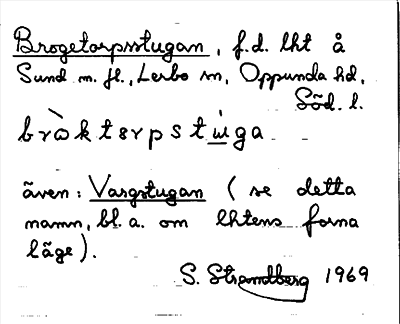 Brogetorpsstugan, f.d. lht å
Sund m. fl., Lerbo sn, Oppunda hd,
Söd. l.
brò̀kterpstùga
även: Vargstugan (se detta
namn, bl. a. om lhtens forna
läge).
S. Strandberg 1969